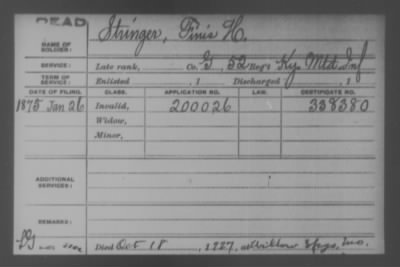 DEAD
Stringer, Finis H.
NAME OF SOLDIER:
SERVICE: Late rank, Co. G, 52 Reg't Ky Mtd Inf
TERM OF SERVICE: Enlisted , 1 Discharged , 1
DATE OF FILING. CLASS. APPLICATION NO. LAW. CERTIFICATE NO.
1875 Jan 26 Invalid, 200026 338380
Widow,
Minor,
ADDITIONAL SERVICES:
REMARKS:
Died Oct 18, 1927, at Willow Spgs, Mo.